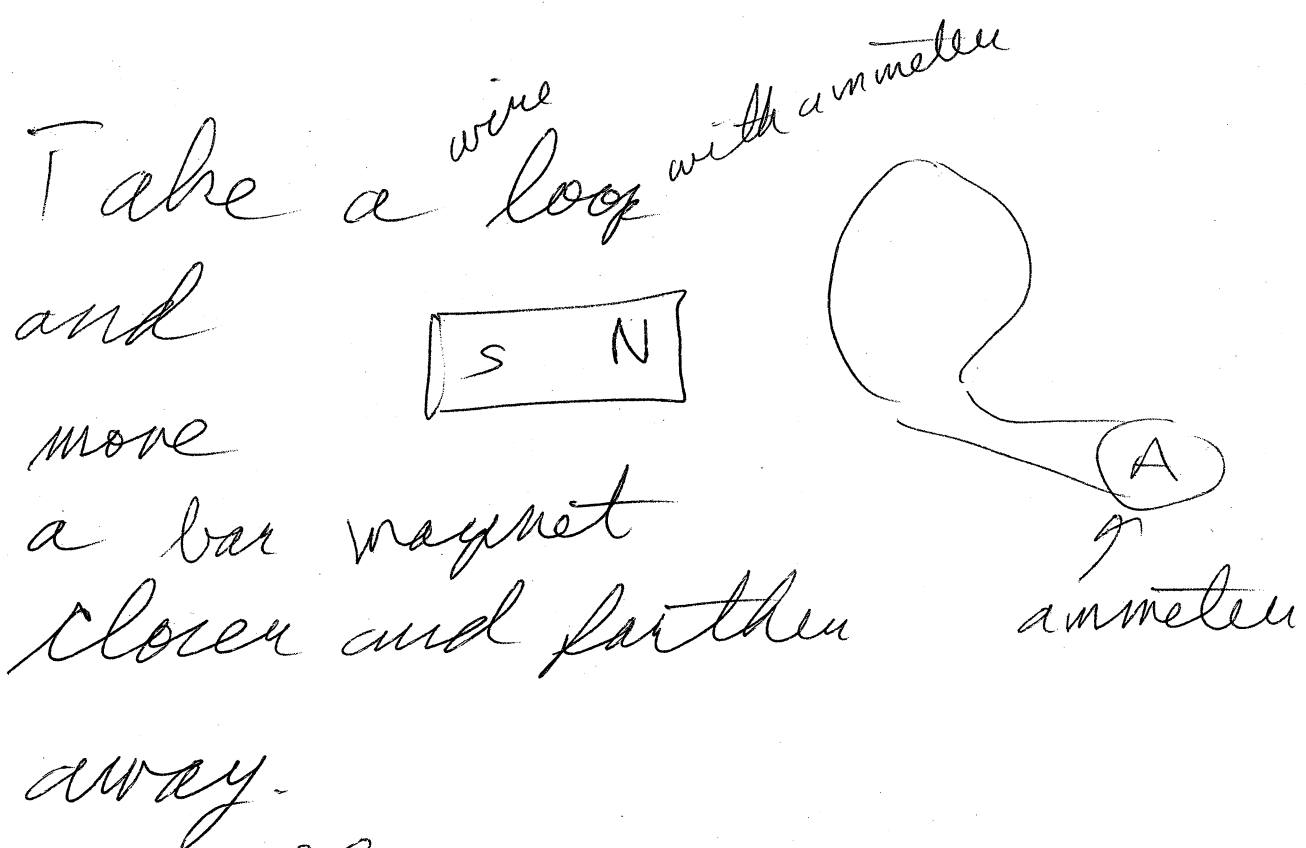 Take a wire loop with ammeter
and
S N
move
A
a bar magnet
closer and farther
ammeter
away.